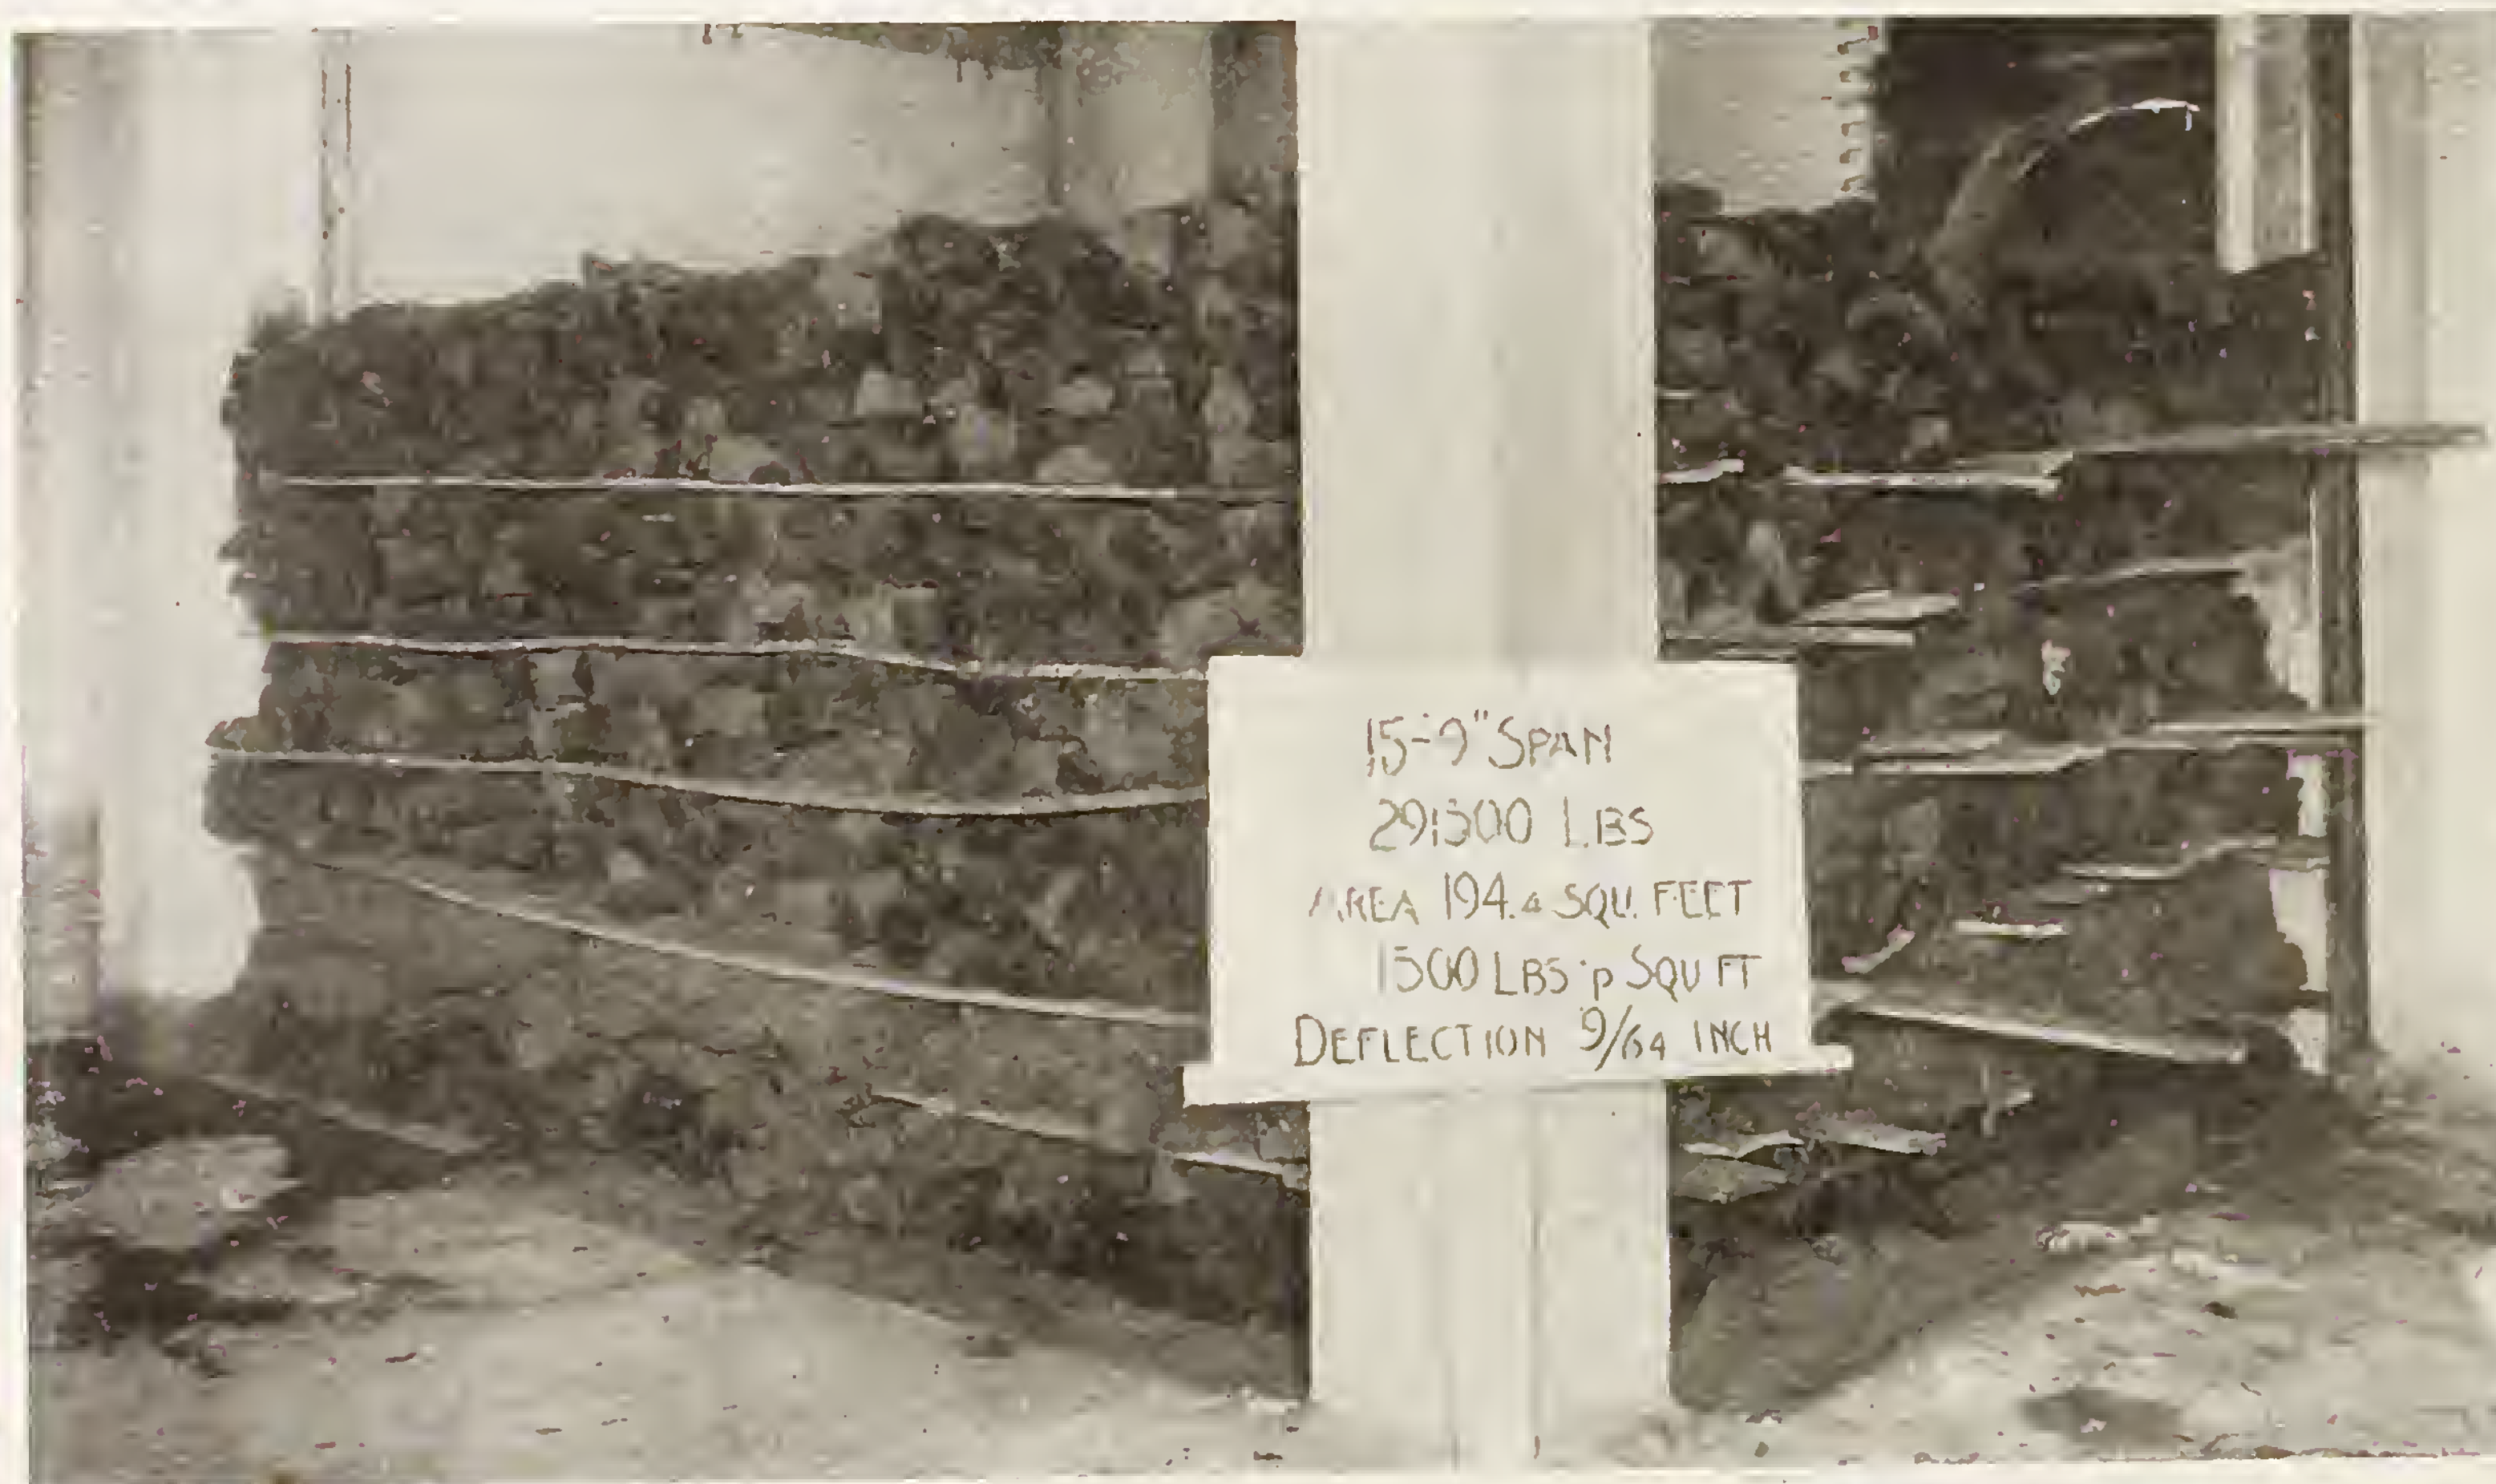 15-9" SPAN
291500 LBS
AREA 194.4 SQU. FEET
1500 LBS p SQU FT
DEFLECTION 9/64 INCH